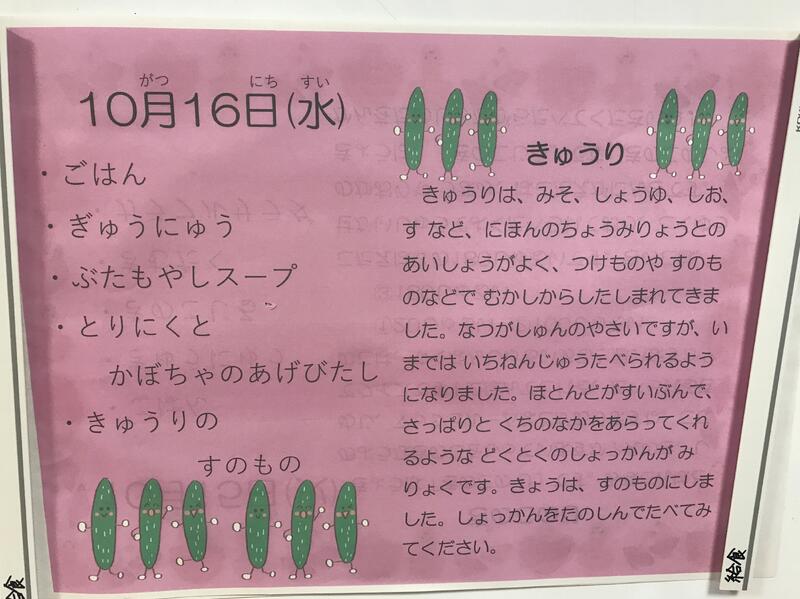 がつ にち すい
10月16日(水)
・ごはん
・ぎゅうにゅう
・ぶたもやしスープ
・とりにくと
かぼちゃのあげびたし
・きゅうりの
すのもの
きゅうり
きゅうりは、みそ、しょうゆ、しお、
す など、にほんのちょうみりょうとの
あいしょうがよく、つけものや すのも
のなどで むかしからしたしまれてきま
した。なつがしゅんのやさいですが、い
までは いちねんじゅうたべられるよう
になりました。ほとんどがすいぶんで、
さっぱりと くちのなかをあらってくれ
るような どくとくのしょっかんが み
りょくです。きょうは、すのものにしま
した。しょっかんをたのしんでたべてみ
てください。
給食
給食